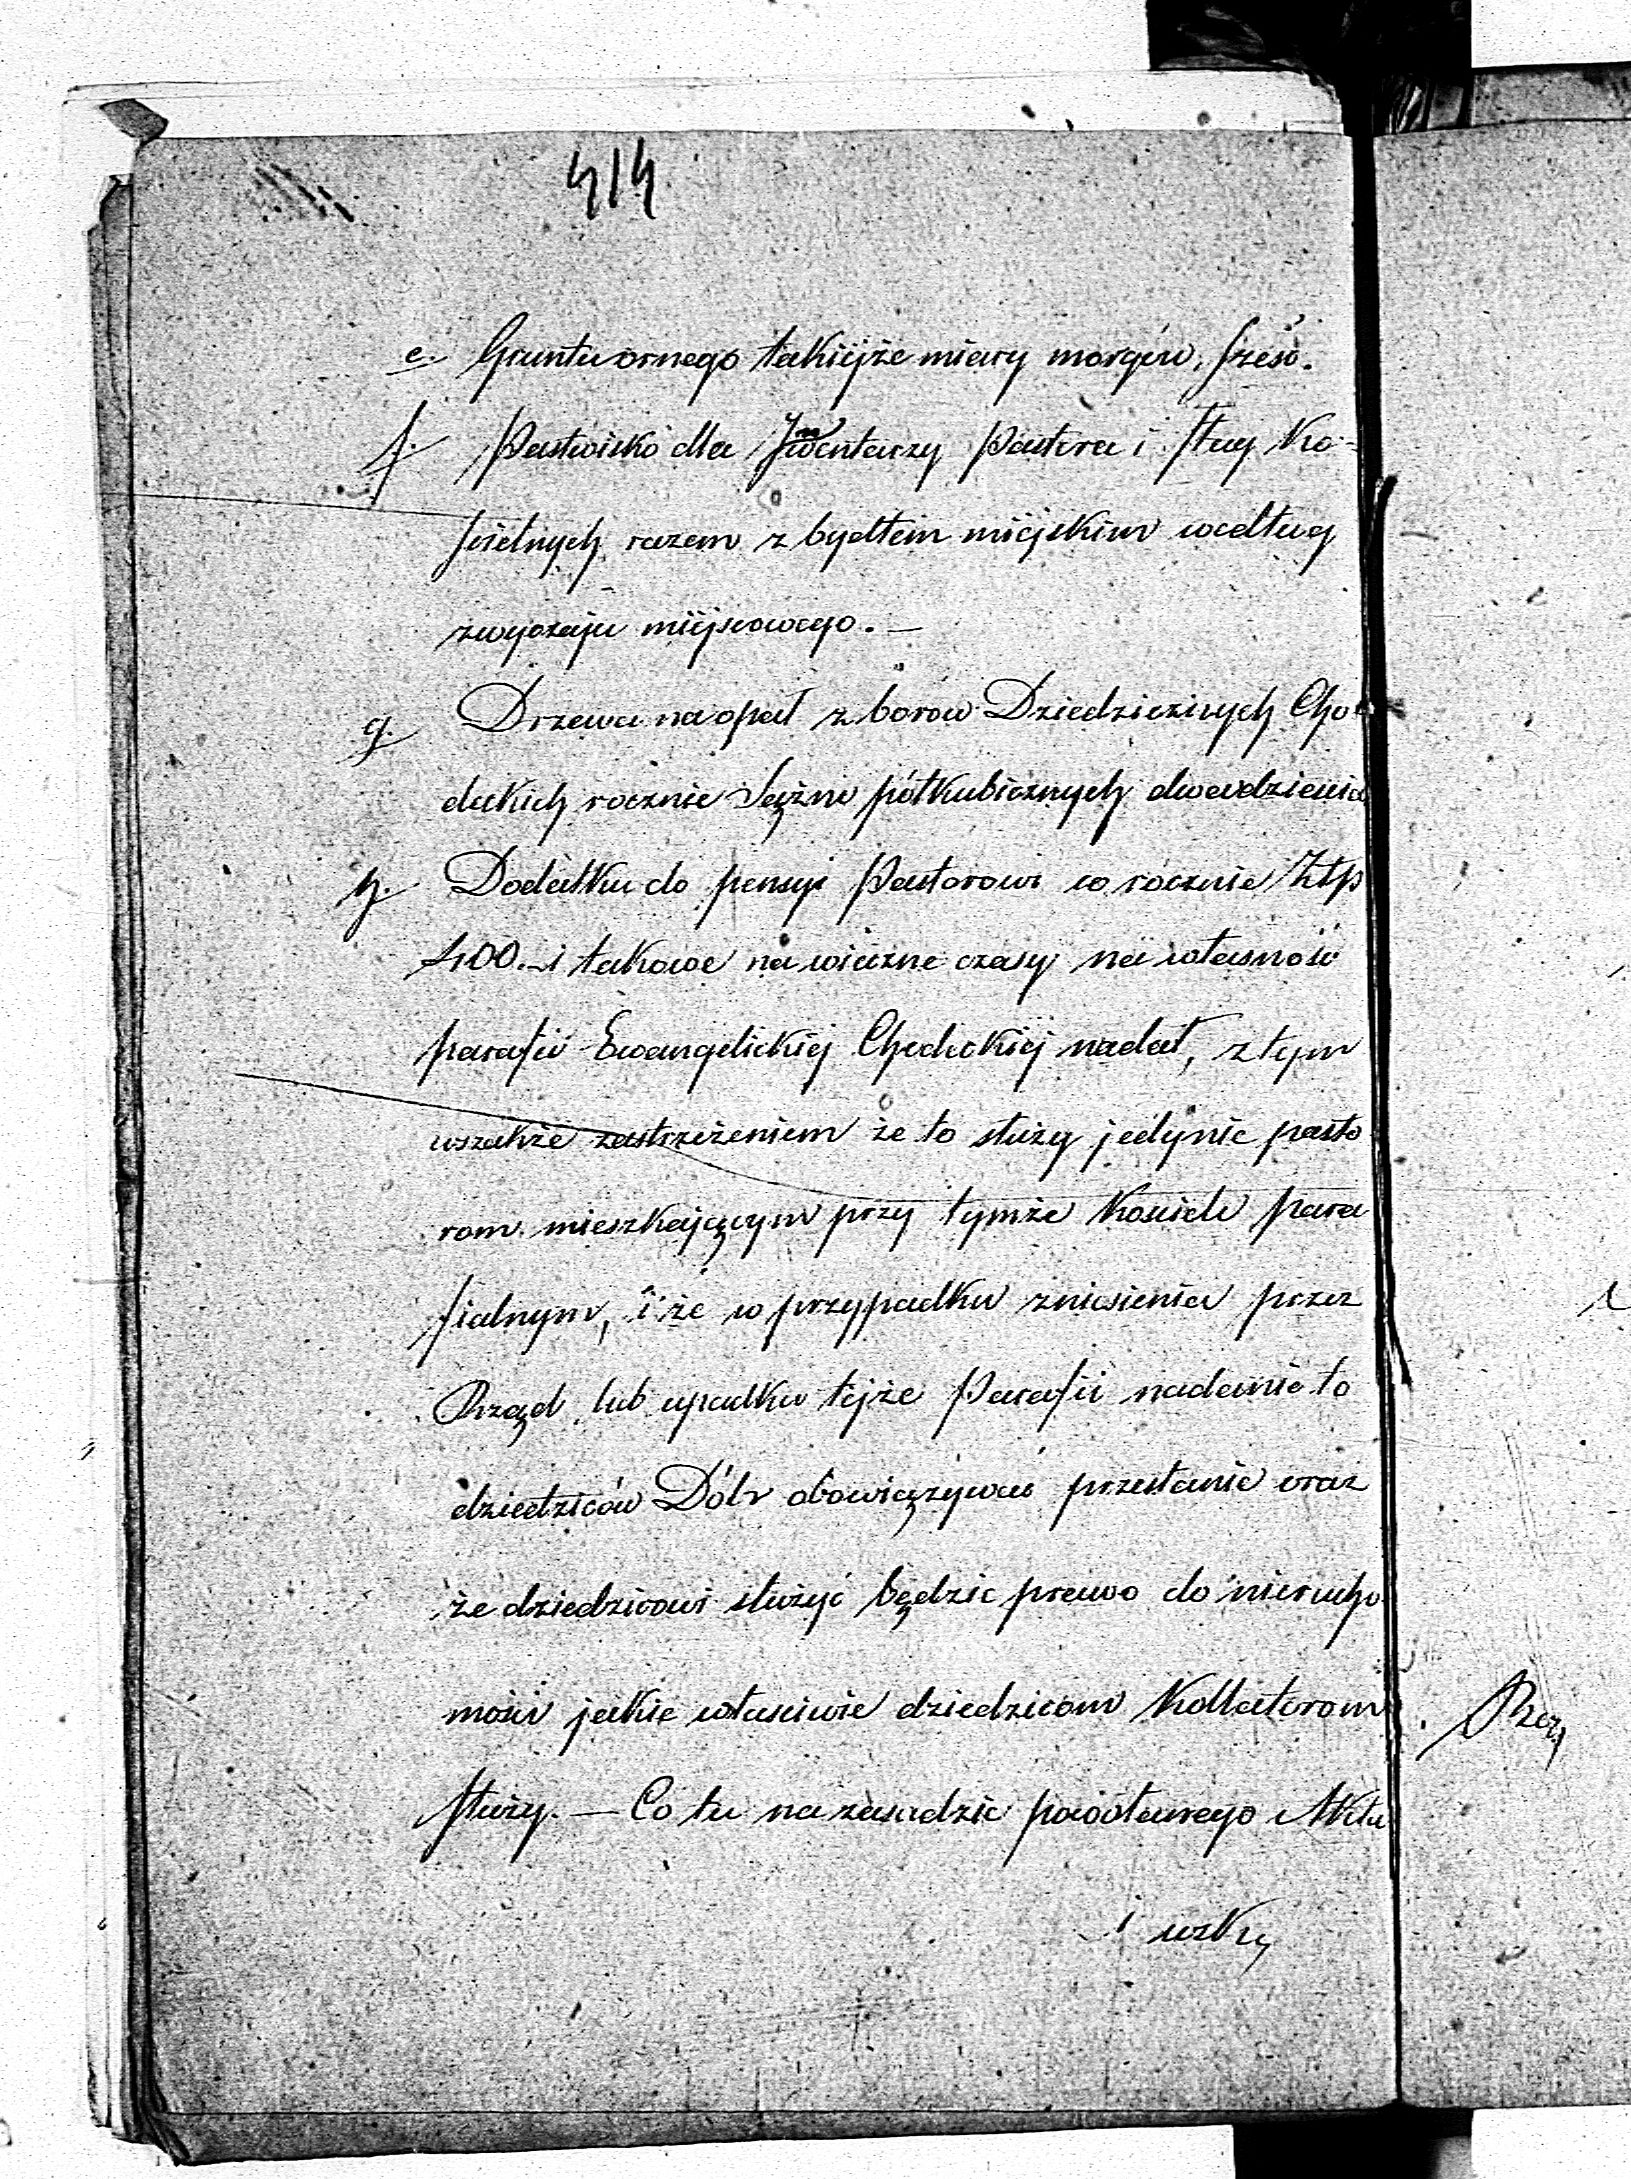 414
e. Gruntu ornego takiijże miary morgów, sześć.
f. Pastwisko dla Inwentarzy Pastora i sług Ko-
ścielnych razem z bydłem miijskim według
zwyczaju miijscowego. —
g. Drzewa na opał z borów Dziedzicznych Cho
deckich rocznie Sążni półkubicznych dwadzieścia
h. Dodatku do pensyi Pastorowi co rocznie Złp
400. – i takowe na wieczne czasy na własność
parafii Ewangelickiej Chodeckiej nadał, z tym
wszakże zastrzeżeniem że to służy jedynie pasto
rom mieszkającym przy tymże Kościele para
fialnym, i że w przypadku zniesienia przez
Rząd lub upadku tejże Parafii nadanie to
dziedziców Dóbr obowiązywać przestanie oraz
że dziedzicowi służyć będzie prawo do nierucho
mości jakie właściwie dziedzicom Kollatorom
służy. — Co tu na zasadzie powołanego Aktu
i wzką